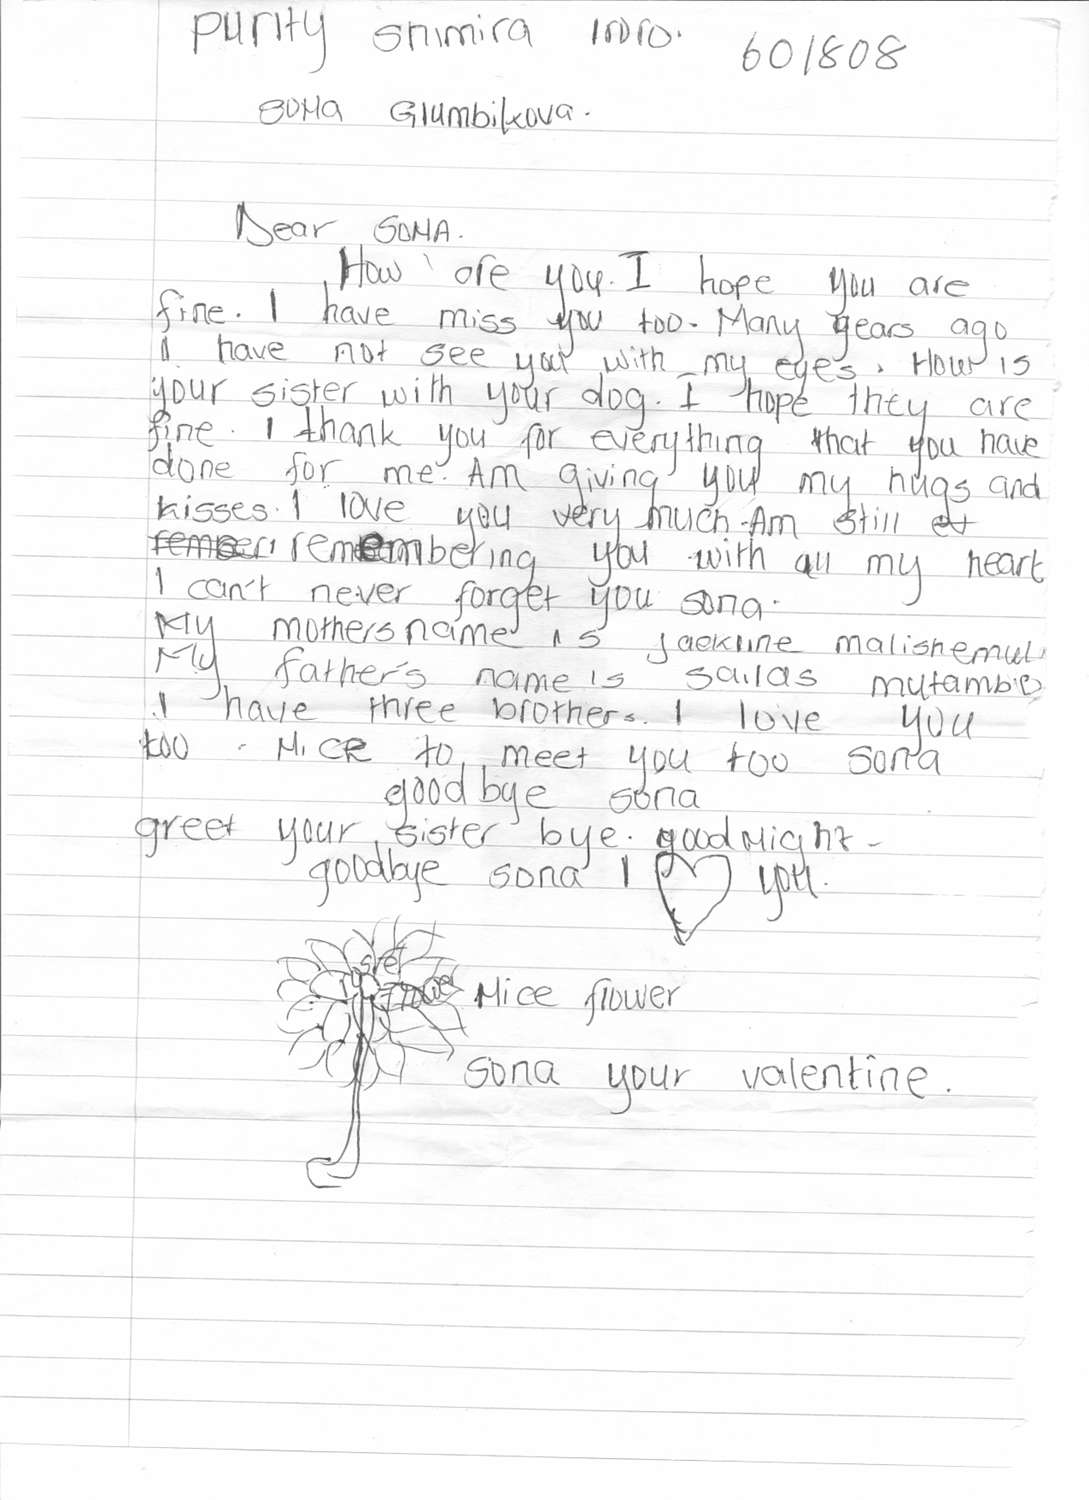 Purity Shimira
601808
SONA Glumbikova.
Dear SONA.
How are you. I hope you are
fine. I have miss you too. Many years ago
I have not see you with my eyes. How is
your sister with your dog. I hope they are
fine. I thank you for everything that you have
done for me. Am giving you my hugs and
kisses. I love you very much. Am still
remembering you with all my heart
I can't never forget you sona.
My mothers name is Jackline
My father's name is sailas
I have three brothers. I love you
too. NICE to meet you too sona
goodbye sona
greet your sister bye. goodNight-
goodbye sona I you.
Nice flower
sona your valentine.